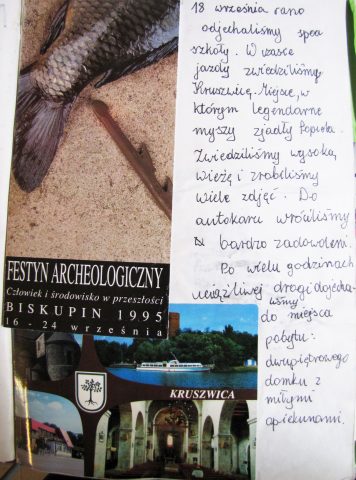 18 września rano
odjechaliśmy spod
szkoły. W czasie
jazdy zwiedziliśmy
Kruszwicę. Miejsce, w
którym legendarne
myszy zjadły Popiela.
Zwiedziliśmy wysoką
wieżę i zrobiliśmy
wiele zdjęć. Do
autokaru wróciliśmy
bardzo zadowoleni.
Po wielu godzinach
uciążliwej drogi dojecha-
liśmy
do miejsca
pobytu:
dwupiętrowego
domku z
miłymi
opiekunami.
FESTYN ARCHEOLOGICZNY
Człowiek i środowisko w przeszłości
BISKUPIN 1995
16 - 24 września
KRUSZWICA